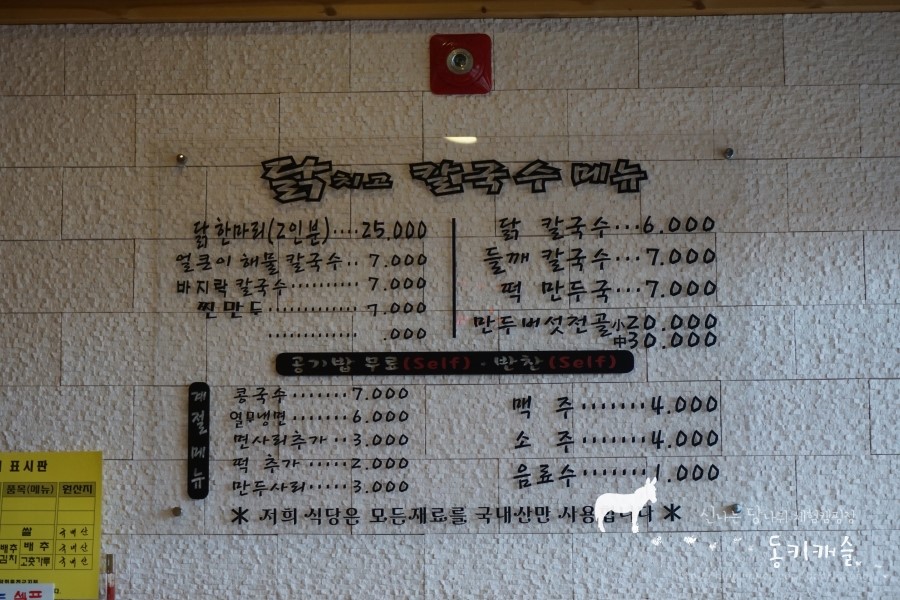 닭치고 칼국수 메뉴
닭한마리(2인분)····25.000
얼큰이 해물 칼국수·· 7.000
바지락 칼국수·········· 7.000
찐만두·············· 7.000
.............. .000
닭 칼국수···6.000
들깨 칼국수···7.000
떡 만두국···7.000
만두버섯전골小20.000
中30.000
공기밥 무료(Self)·반찬(Self)
계절메뉴
콩국수········7.000
열무냉면········6.000
면사리추가··3.000
떡 추가·····2.000
만두사리·····3.000
맥 주·······4.000
소 주·······4.000
음료수·······1.000
* 저희 식당은 모든재료를 국내산만 사용합니다 *
표시판
품목(메뉴) 원산지
쌀 국내산
배추 배추 국내산
김치 고춧가루 국내산
셀프
신나는 당나귀 체험캠핑장
동키캐슬